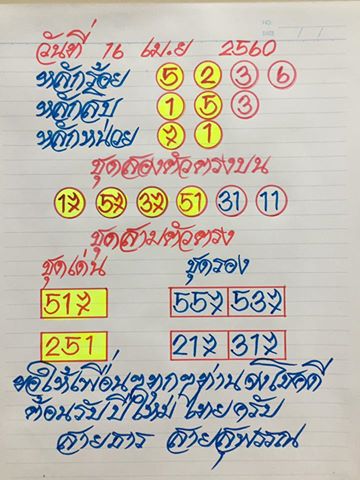 NO.
DATE / /
วันที่ 16 เม.ย 2560
หลักร้อย 5 2 3 6
หลักสิบ 1 5 3
หลักหน่วย 7 1
ชุดสองตัวตรงบน
17 57 37 51 31 11
ชุดสามตัวตรง
ชุดเด่น ชุดรอง
517 557 537
251 217 317
ขอให้เพื่อนๆทุกๆท่านจงโชคดี
ต้อนรับปีใหม่ ไทยครับ
สายธาร สายสุพรรณ